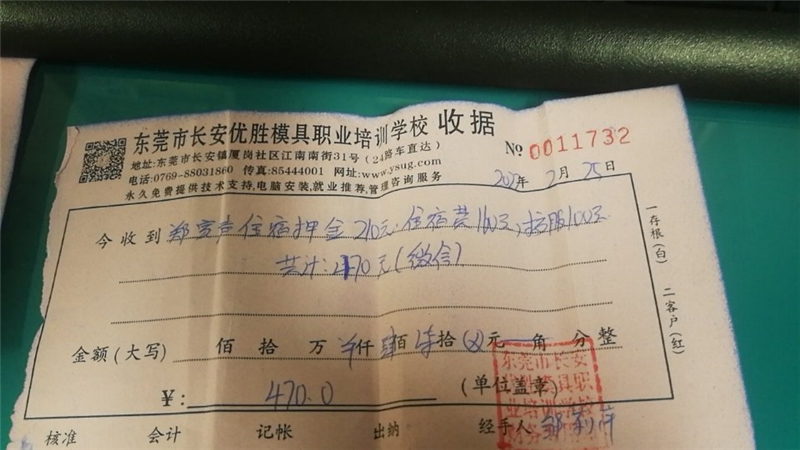 东莞市长安优胜模具职业培训学校 收据
№ 0011732
地址:东莞市长安镇厦岗社区江南南街31号(24路车直达)
电话:0769-88031860 传真:85444001 网址:www.ysug.com
永久免费提供技术支持,电脑安装,就业推荐,管理咨询服务
年 2月 25日
今收到 住宿押金210元,住宿费160元,
共计:470元(微信)
金额(大写) 佰 拾 万 仟 肆佰 柒拾 元 角 分 整
¥: 470.0 (单位盖章)
核准 会计 记帐 出纳 经手人
一存根(白) 二客户(红)
东莞市长安